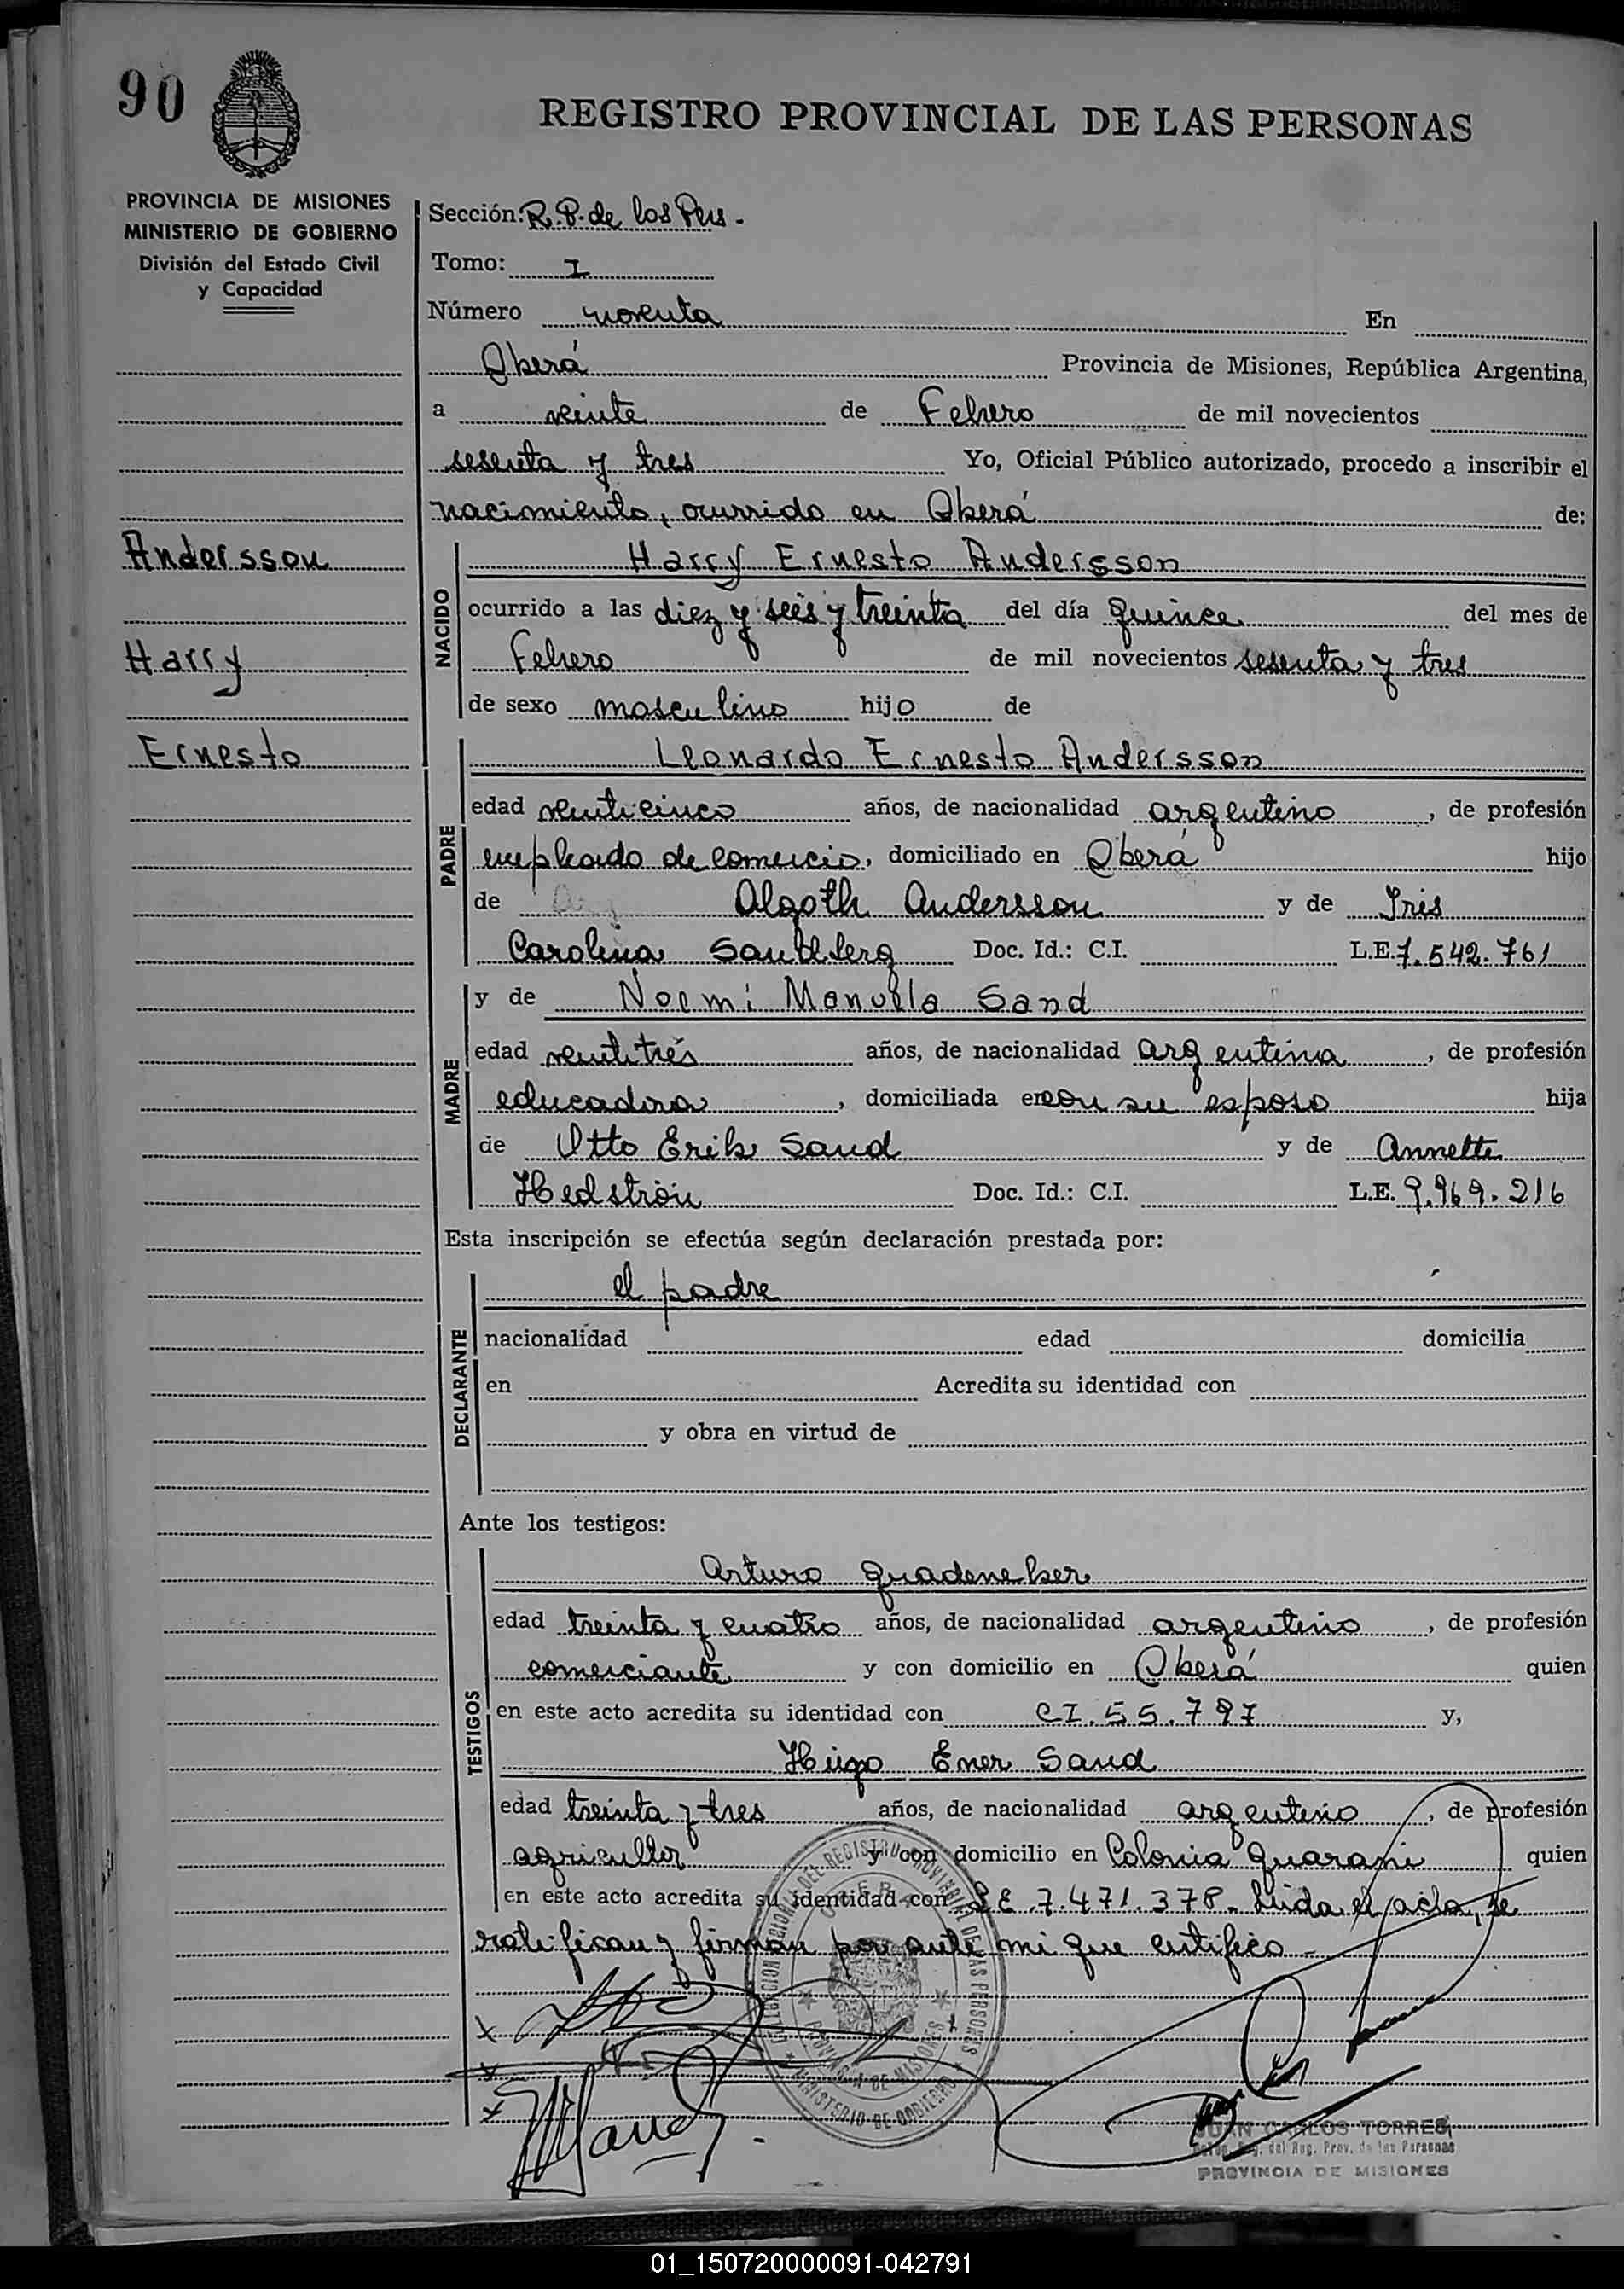 90
REGISTRO PROVINCIAL DE LAS PERSONAS
PROVINCIA DE MISIONES
MINISTERIO DE GOBIERNO
División del Estado Civil
y Capacidad
Sección: R. P. de los Pers.
Tomo: I
Número noventa En
Oberá Provincia de Misiones, República Argentina,
a veinte de Febrero de mil novecientos
sesenta y tres Yo, Oficial Público autorizado, procedo a inscribir el
nacimiento, ocurrido en Oberá de:
Andersson
Harry
Ernesto
NACIDO
Harry Ernesto Andersson
ocurrido a las diez y seis y treinta del día quince del mes de
Febrero de mil novecientos sesenta y tres
de sexo masculino hijo de
PADRE
Leonardo Ernesto Andersson
edad veinticinco años, de nacionalidad argentino, de profesión
empleado de comercio, domiciliado en Oberá hijo
de Algoth Andersson y de Iris
Carolina Doc. Id.: C.I. L.E. 7.542.761
MADRE
y de Noemi Manuela Sand
edad veintitrés años, de nacionalidad argentina, de profesión
educadora, domiciliada en con su esposo hija
de Otto Erik Sand y de Annette
Hedströn Doc. Id.: C.I. L.E. 9.969.216
Esta inscripción se efectúa según declaración prestada por:
DECLARANTE
el padre
nacionalidad edad domicilia
en Acredita su identidad con
y obra en virtud de
Ante los testigos:
TESTIGOS
Arturo
edad treinta y cuatro años, de nacionalidad argentino, de profesión
comerciante y con domicilio en Oberá quien
en este acto acredita su identidad con CI. 55.797 y,
Hugo Ener Sand
edad treinta y tres años, de nacionalidad argentino, de profesión
agricultor y con domicilio en Colonia Guarani quien
en este acto acredita su identidad con LE 7.471.378. Leida el acta, se
ratifican y firman por ante mi que certifico
DEL REGISTRO PROVINCIAL DE LAS PERSONAS
OBERA
PROVINCIA DE MISIONES
MINISTERIO DE GOBIERNO
JUAN CARLOS TORRES
del Reg. Prov. de las Personas
PROVINCIA DE MISIONES
01_150720000091-042791